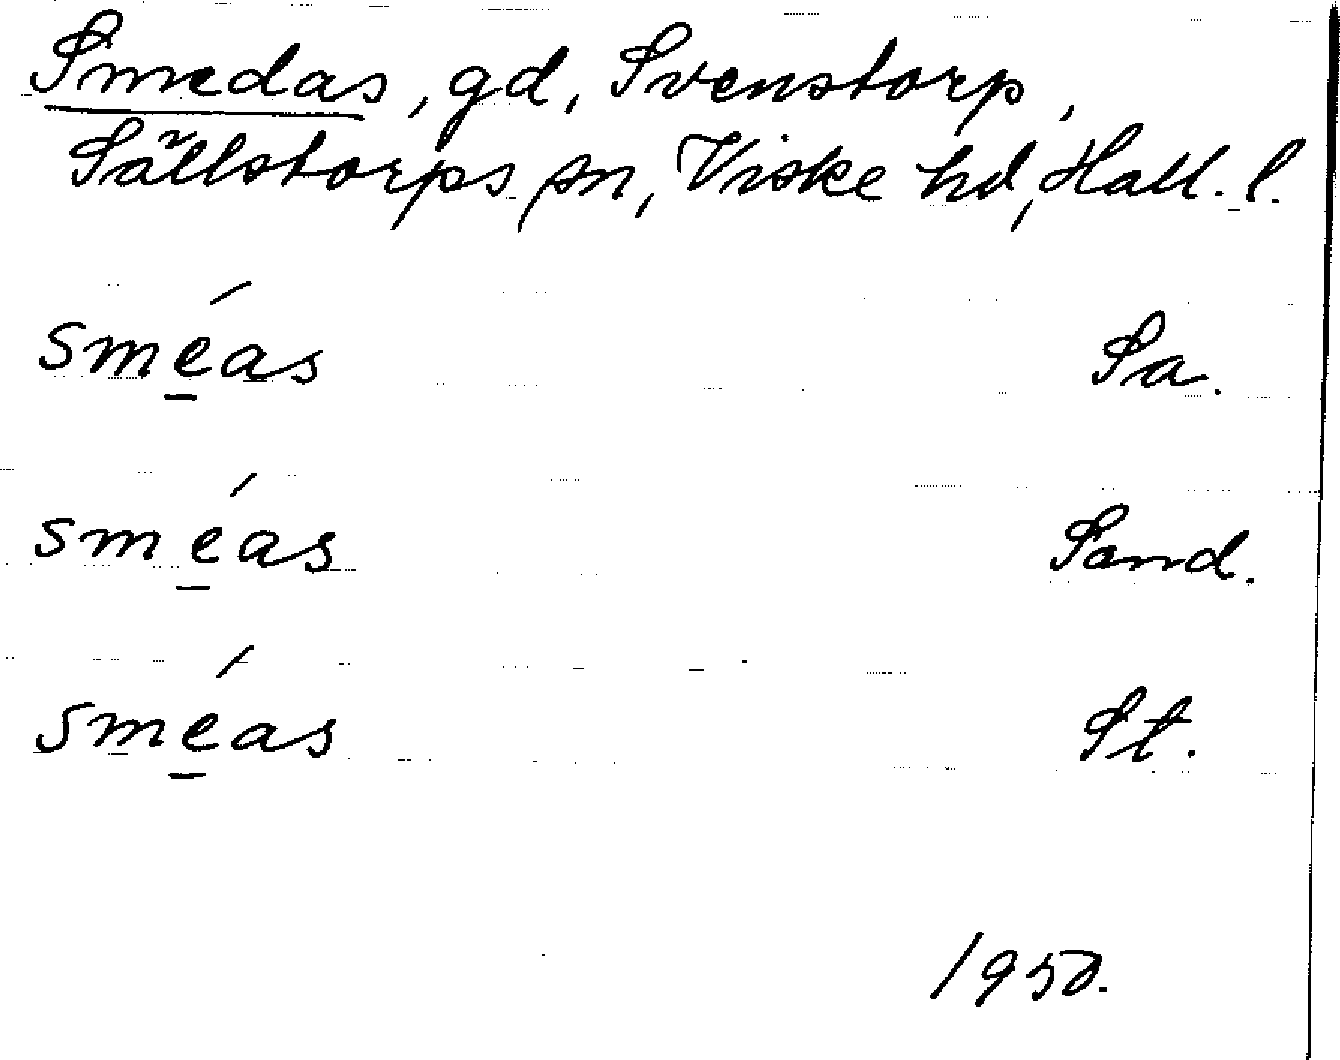 Smedas, gd, Svenstorp,
Sällstorps sn, Viske hd, Hall. l.
smé̲as Sa.
smé̲as Sand.
smé̲as St.
1950.